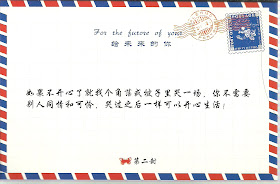 For the future of your
给未来的你
如果不开心了就找个角落或被子里哭一场，你不需要
别人同情和可怜，哭过之后一样可以开心生活！
第二封